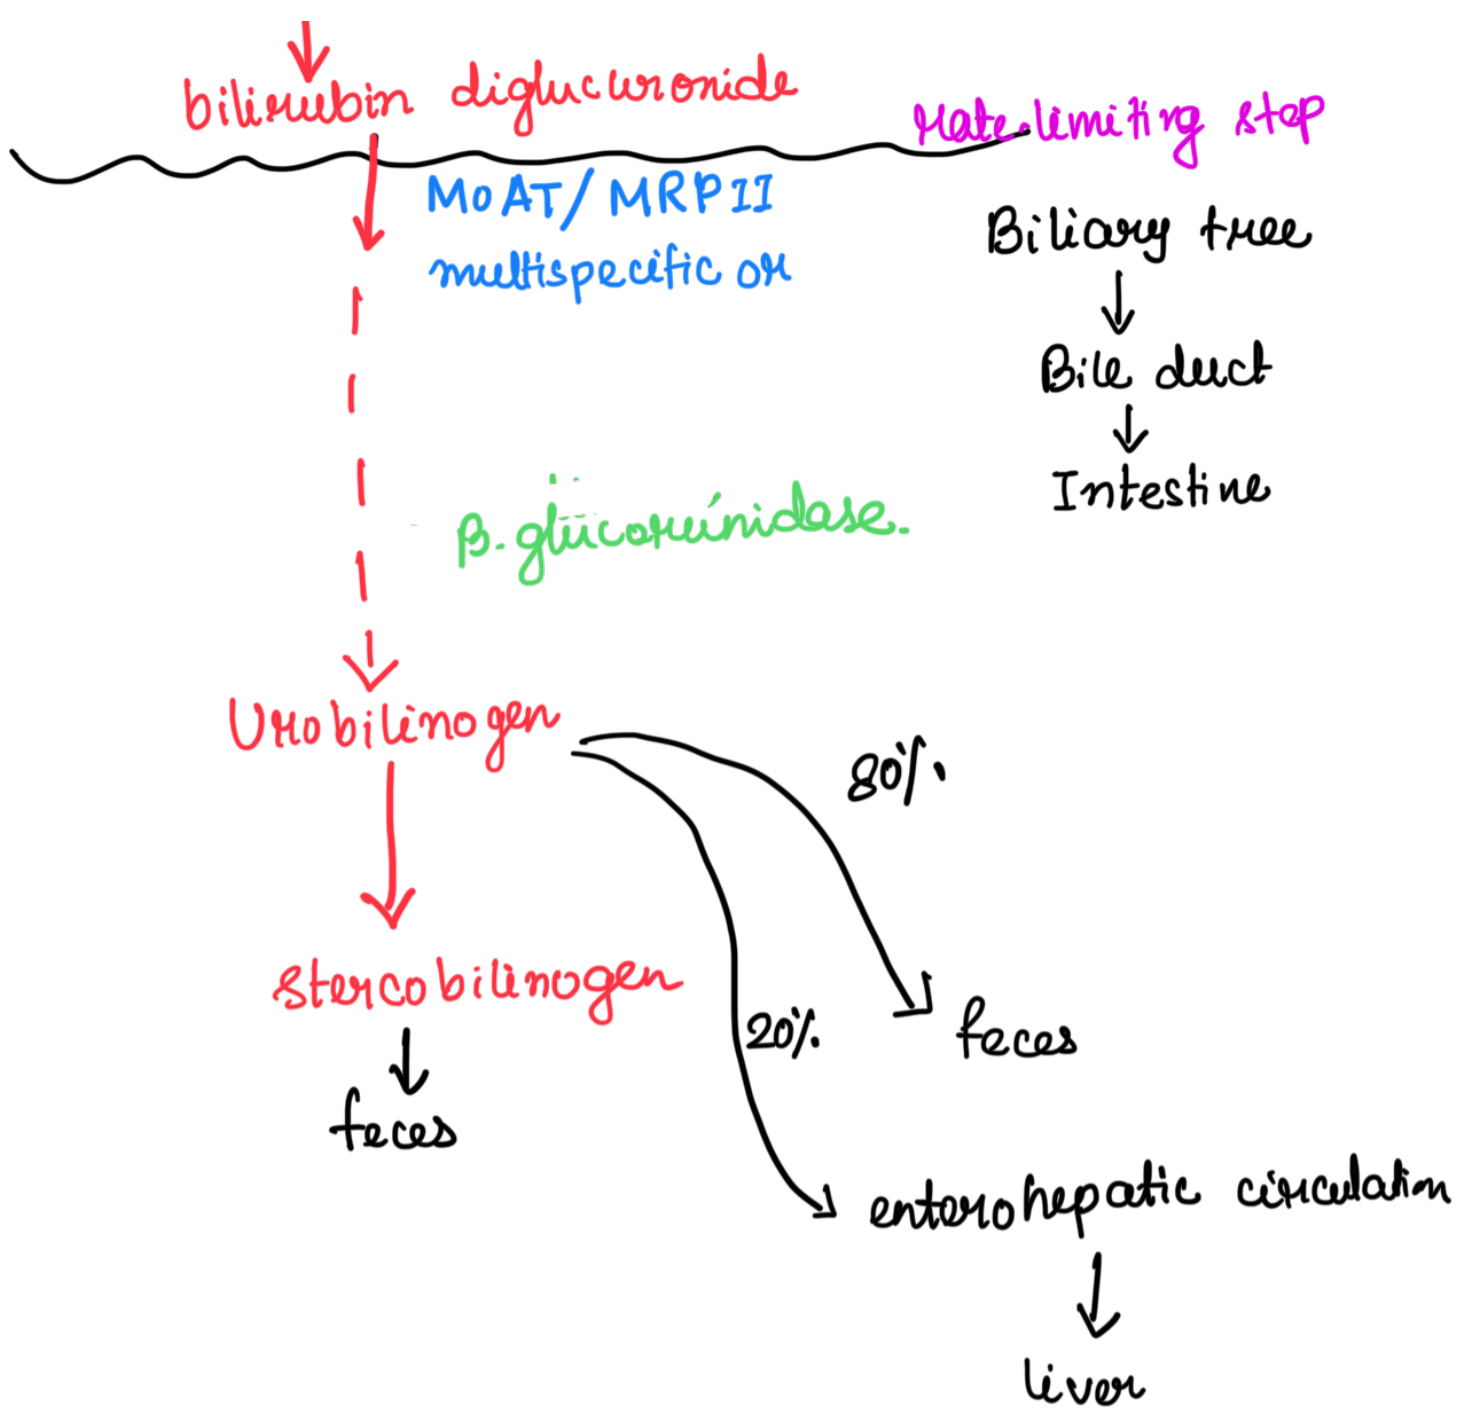 bilirubin diglucuronide
rate-limiting step
MOAT/MRPII
multispecific or
Biliary tree
Bile duct
Intestine
β-glucorunidase.
Urobilinogen
80%
stercobilinogen
20%
feces
feces
enterohepatic circulation
liver